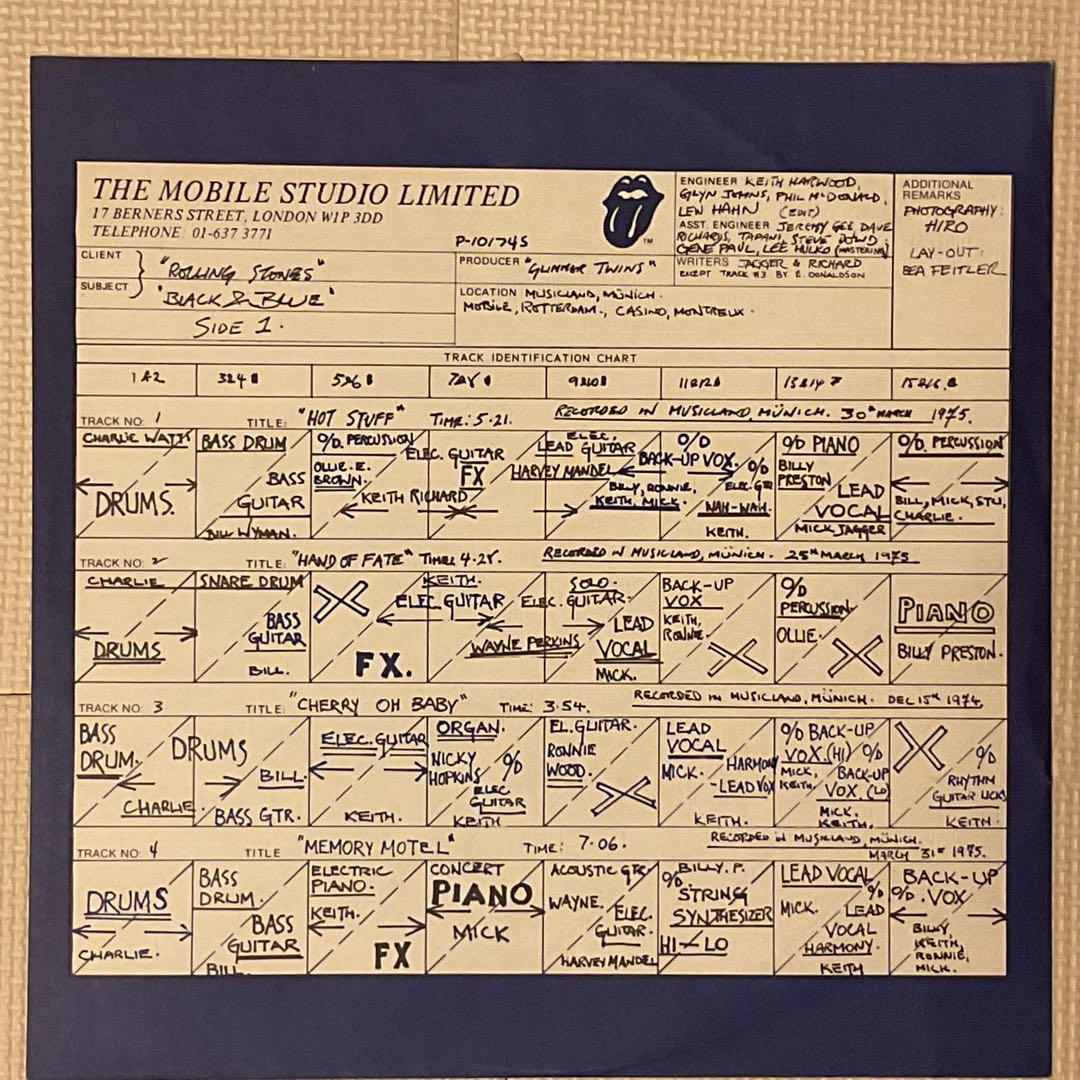 THE MOBILE STUDIO LIMITED
17 BERNERS STREET, LONDON W1P 3DD
TELEPHONE: 01-637 3771
P-10174S
TM
ENGINEER KEITH HARWOOD,
GLYN JOHNS, PHIL McDONALD,
LEW HAHN (EDIT)
ASST. ENGINEER JEREMY GEE, DAVE
RICHARDS, TAPANI, STEVE DOWD,
GENE PAUL, LEE HULKO (MASTERING)
WRITERS JAGGER & RICHARD
EXCEPT TRACK #3 BY E. DONALDSON
ADDITIONAL
REMARKS
PHOTOGRAPHY:
HIRO
LAY-OUT:
BEA FEITLER
CLIENT
"ROLLING STONES"
SUBJECT
'BLACK & BLUE'
SIDE 1.
PRODUCER "GLIMMER TWINS"
LOCATION MUSICLAND, MÜNICH.
MOBILE, ROTTERDAM., CASINO, MONTREUX.
TRACK IDENTIFICATION CHART
1 & 2
3 & 4
5 & 6
7 & 8
9 & 10
11 & 12
TRACK NO: 1 TITLE: "HOT STUFF" TIME: 5.21. RECORDED IN MUSICLAND, MÜNICH. 30th MARCH 1975.
CHARLIE WATTS
DRUMS.
BASS DRUM
BASS
GUITAR
BILL WYMAN.
O/D. PERCUSSION
OLLIE. E.
BROWN.
ELEC. GUITAR
FX
KEITH RICHARD
ELEC.
LEAD GUITAR
HARVEY MANDEL
O/D
BACK-UP VOX.
BILLY, RONNIE,
KEITH, MICK.
O/D
ELEC. GTR
WAH-WAH.
KEITH.
O/D PIANO
BILLY
PRESTON
LEAD
VOCAL
MICK JAGGER
O/D. PERCUSSION
BILL, MICK, STU,
CHARLIE.
TRACK NO: 2 TITLE: "HAND OF FATE" TIME: 4.28. RECORDED IN MUSICLAND, MÜNICH. 25th MARCH 1975
CHARLIE
DRUMS
SNARE DRUM
BASS
GUITAR
BILL.
X
FX.
KEITH.
ELEC. GUITAR
WAYNE PERKINS
SOLO.
ELEC. GUITAR.
LEAD
VOCAL
MICK.
BACK-UP
VOX
KEITH,
RONNIE.
X
O/D
PERCUSSION
OLLIE.
X
PIANO
BILLY PRESTON.
TRACK NO: 3 TITLE: "CHERRY OH BABY" TIME: 3.54. RECORDED IN MUSICLAND, MÜNICH. DEC 15th 1974
BASS
DRUM.
DRUMS
CHARLIE.
BILL.
BASS GTR.
ELEC. GUITAR
KEITH.
ORGAN.
NICKY
HOPKINS
O/D
ELEC
GUITAR
KEITH
EL. GUITAR.
RONNIE
WOOD.
X
LEAD
VOCAL
MICK.
HARMONY
-LEAD VOX
KEITH.
O/D BACK-UP
VOX. (HI)
MICK,
KEITH.
O/D
BACK-UP
VOX. (LO)
MICK.
KEITH.
X
O/D
RHYTHM
GUITAR LICKS
KEITH.
TRACK NO: 4 TITLE "MEMORY MOTEL" TIME: 7.06. RECORDED IN MUSICLAND, MÜNICH.
MARCH 31st 1975.
DRUMS
CHARLIE.
BASS
DRUM.
BASS
GUITAR
BILL
ELECTRIC
PIANO.
KEITH.
FX
CONCERT
PIANO
MICK
ACOUSTIC GTR.
WAYNE.
ELEC.
GUITAR.
HARVEY MANDEL
BILLY. P.
O/D STRING
SYNTHESIZER
HI - LO
LEAD VOCAL
MICK.
O/D
LEAD
VOCAL
HARMONY.
KEITH
BACK-UP
O/D. VOX
BILLY,
KEITH,
RONNIE,
MICK.